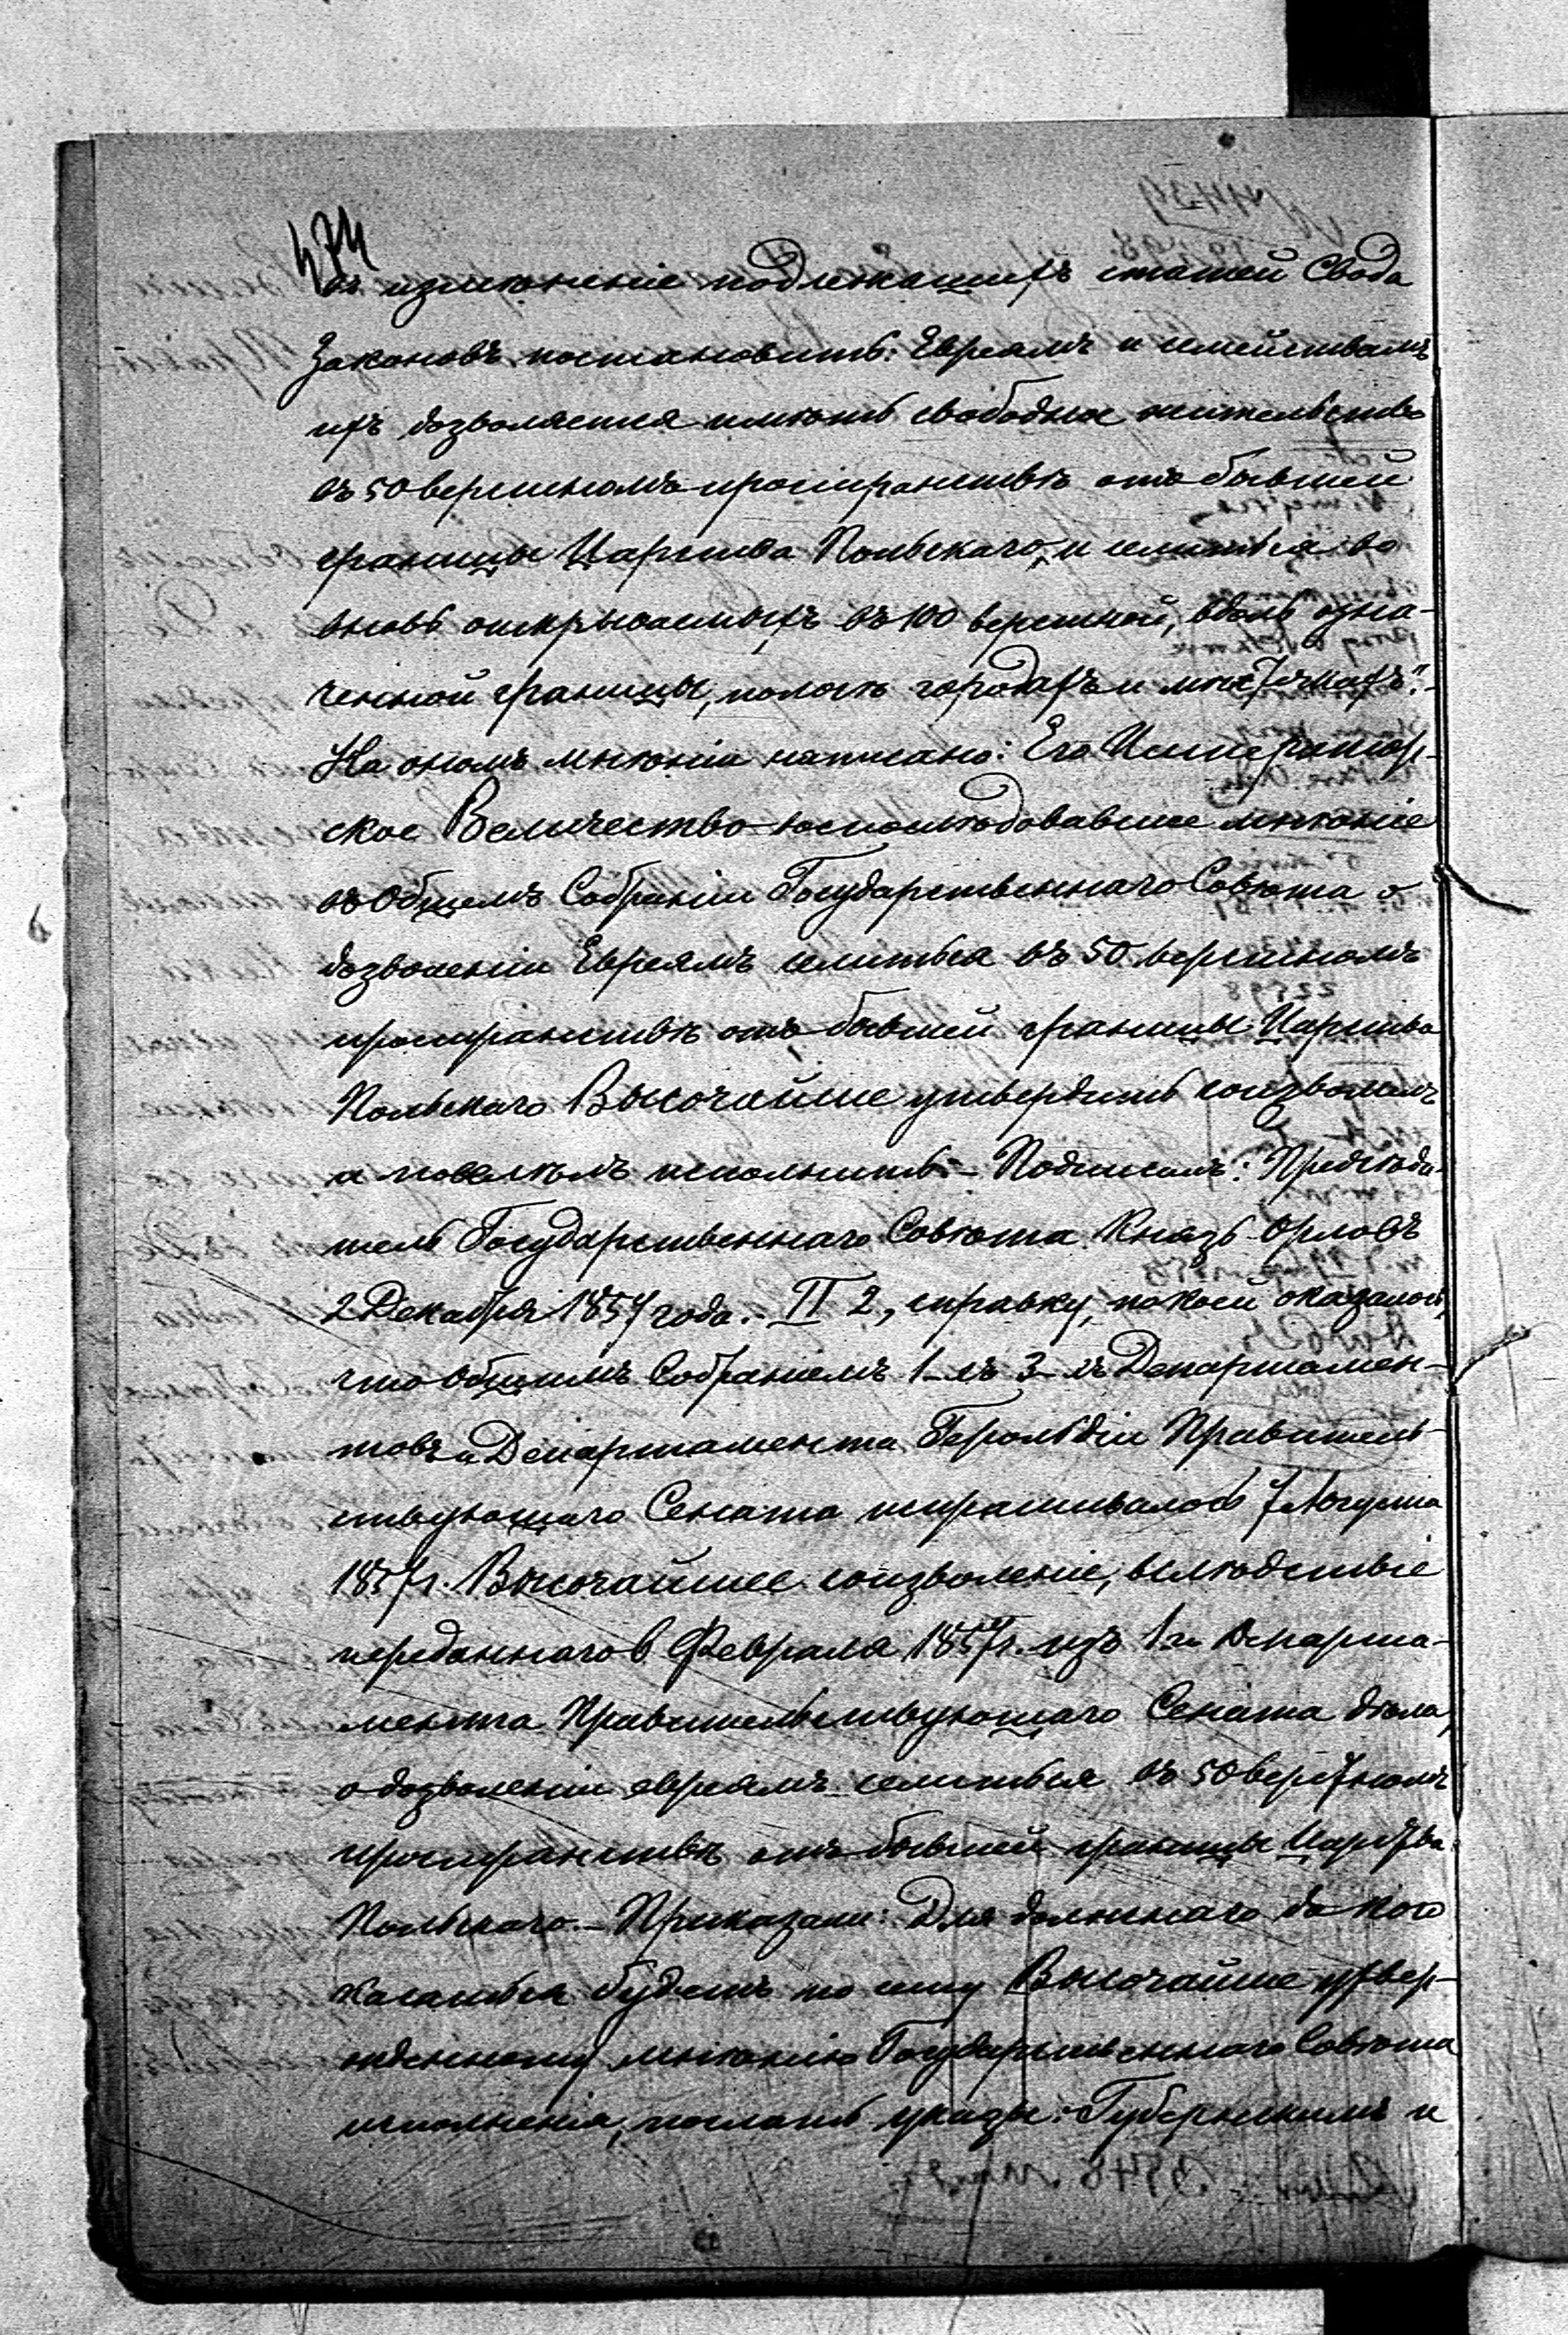 474
въ измѣненіе подлежащихъ статей Свода
Законовъ постановить: Евреямъ и семействамъ
ихъ дозволяется имѣть свободное жительство
въ 50 верстномъ пространствѣ отъ бывшей
границы Царства Польскаго, и селиться во
вновь открываемыхъ въ 100 верстной, вдоль озна-
ченной границы, полосѣ городахъ и мѣстечкахъ".-
На ономъ мнѣніи написано: Его Император-
ское Величество воспослѣдовавшее мнѣніе
въ Общемъ Собраніи Государственнаго Совѣта о
дозволеніи Евреямъ селиться въ 50 верстномъ
пространствѣ отъ бывшей границы Царства
Польскаго Высочайше утвердить соизволилъ
и повелѣлъ исполнить.- Подписалъ: Предсѣда-
тель Государственнаго Совѣта Князь Орловъ
2 Декабря 1857 года.- И 2, справку, по коей оказалось,
что Общимъ Собраніемъ 1-хъ 3-хъ Департамен-
товъ и Департамента Герольдіи Правитель-
ствующаго Сената испрашивалось 7 Августа
1857 г. Высочайшее соизволеніе, вслѣдствіе
переданнаго въ Февраля 1857 г. изъ 1 го Департа-
мента Правительствующаго Сената дѣла,
о дозволеніи евреямъ селиться въ 50 верстномъ
пространствѣ отъ бывшей границы Царства
Польскаго.- Приказали: Для должнаго до кого
касаться будетъ по сему Высочайше утвер-
жденному мнѣнію Государственнаго Совѣта
исполненія, послать указы: Губернскимъ и